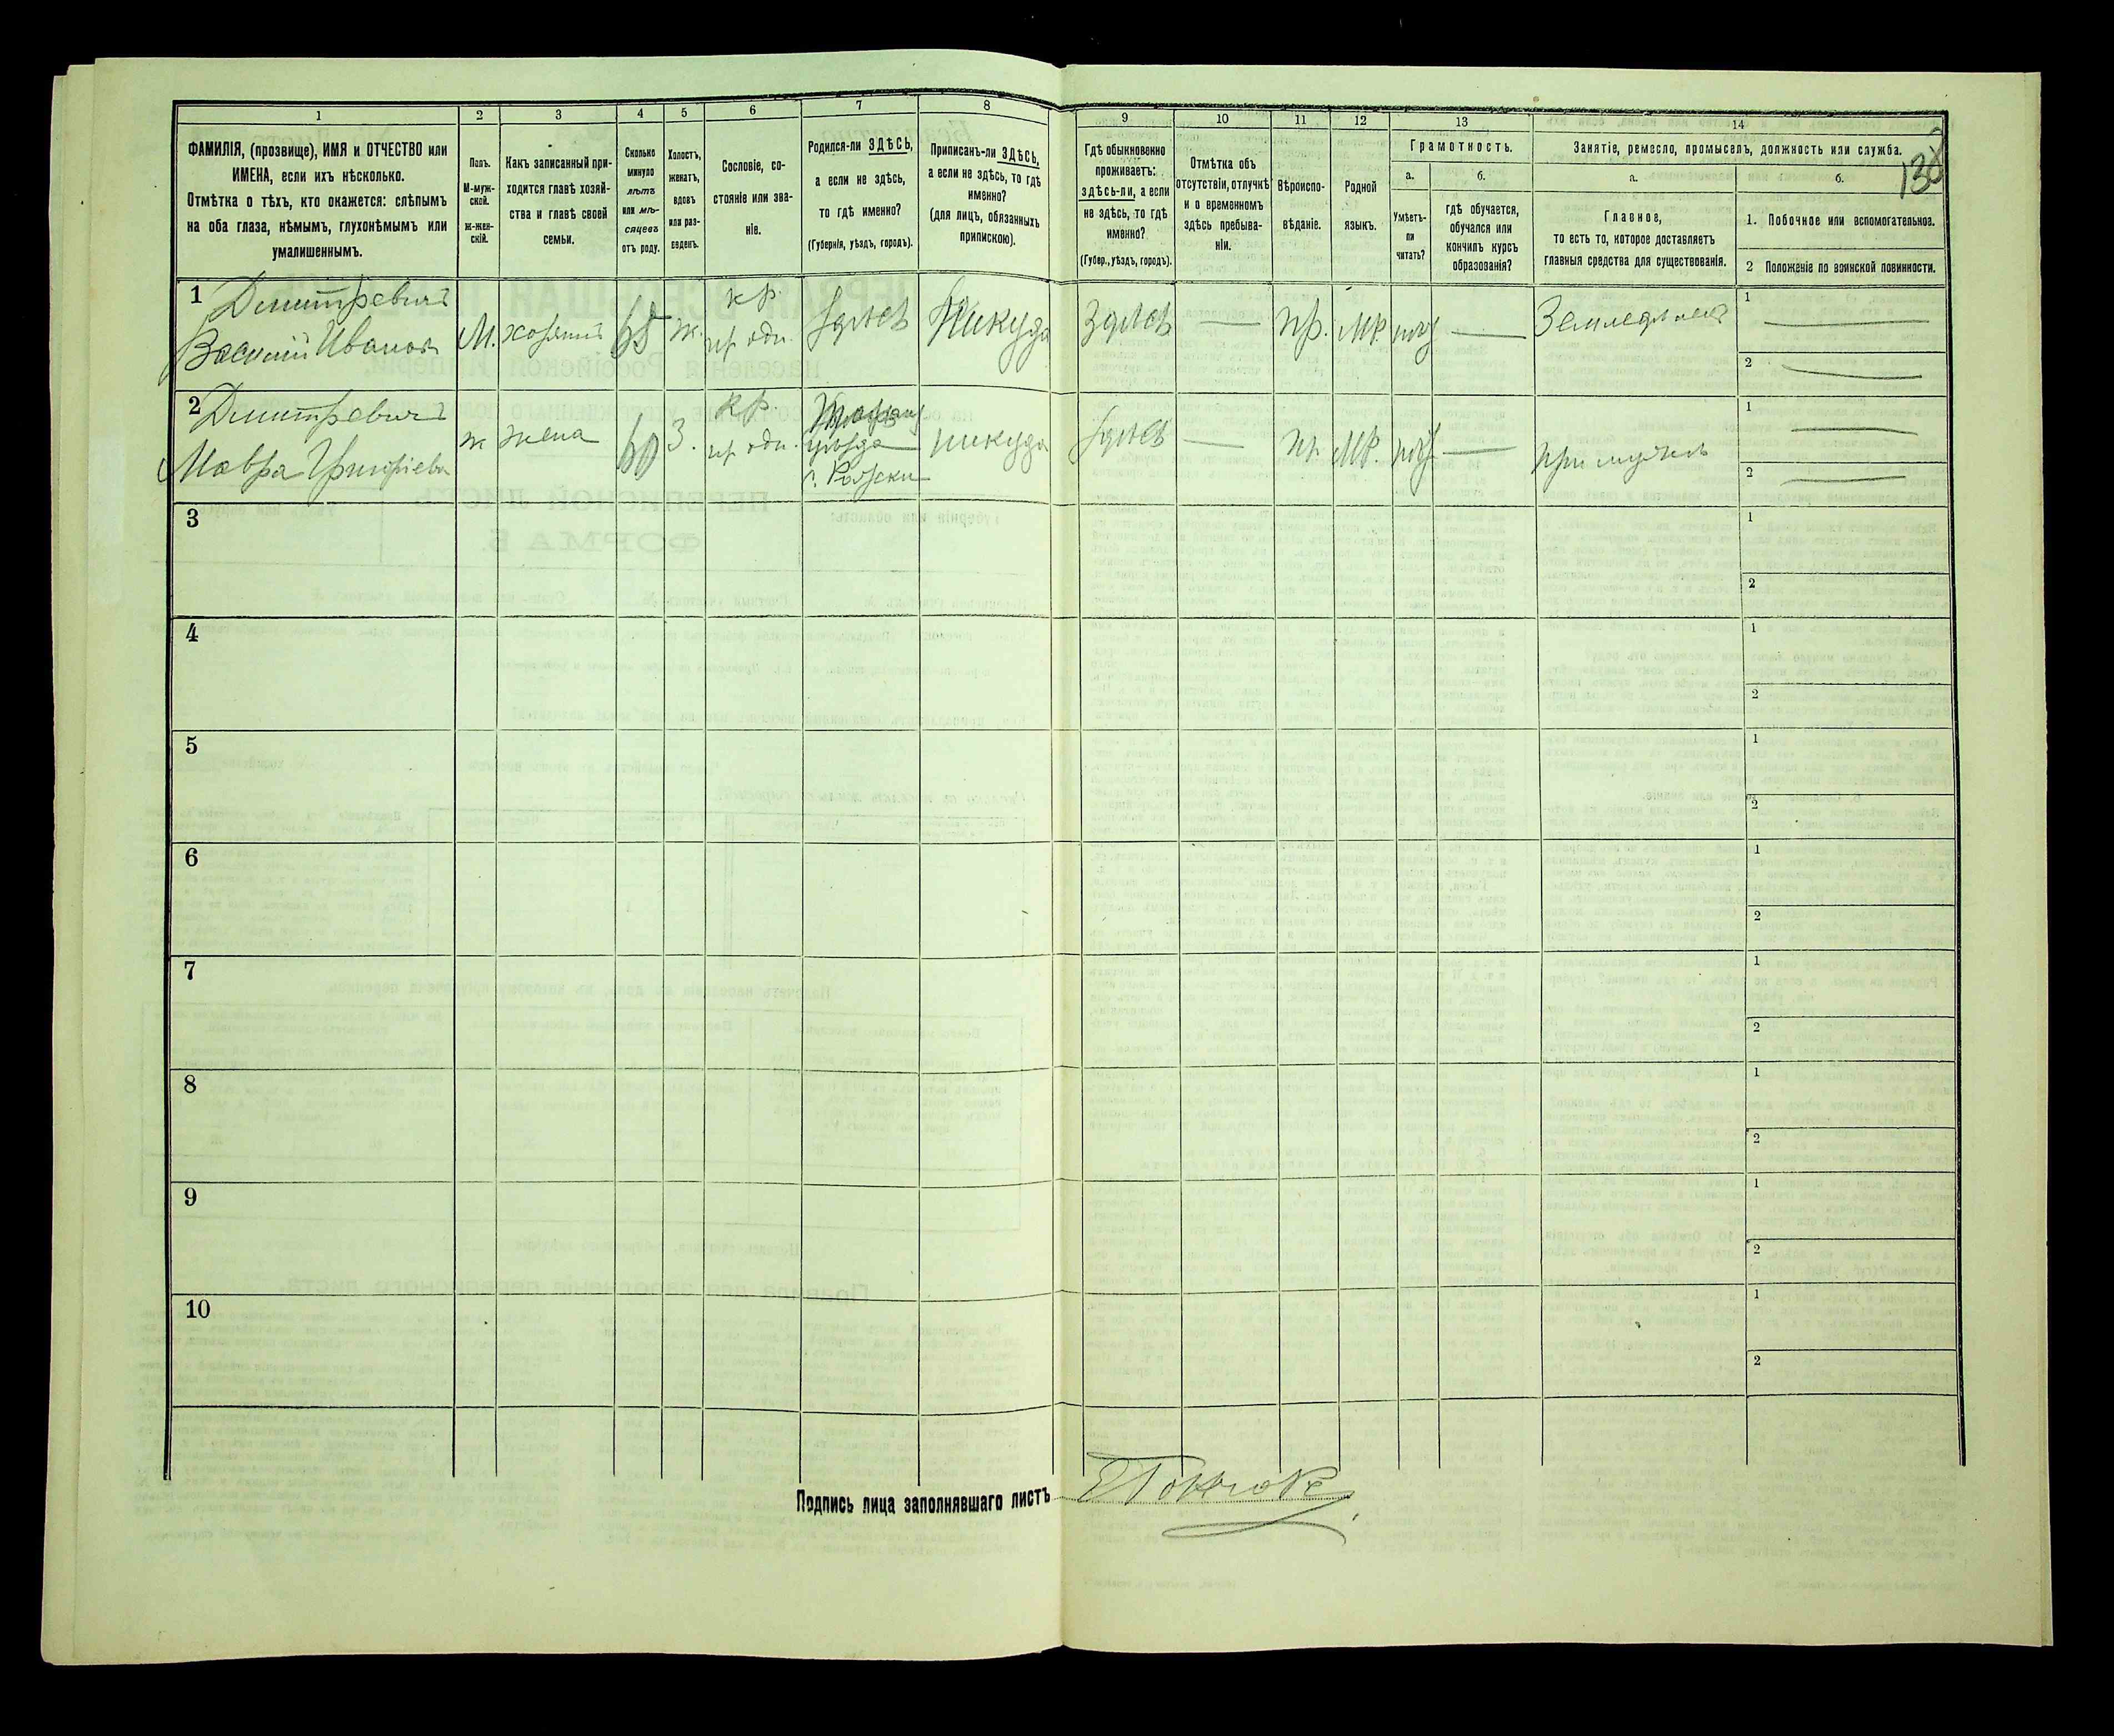 1 2 3 4 5 6 7 8 9 10 11 12 13 14
ФАМИЛІЯ, (прозвище), ИМЯ и ОТЧЕСТВО или
ИМЕНА, если ихъ нѣсколько.
Отмѣтка о тѣхъ, кто окажется: слѣпымъ
на оба глаза, нѣмымъ, глухонѣмымъ или
умалишеннымъ.
Полъ.
М-муж-
ской.
ж-жен-
скій.
Какъ записанный при-
ходится главѣ хозяй-
ства и главѣ своей
семьи.
Сколько
минуло
лѣтъ
или мѣ-
сяцевъ
отъ роду.
Холостъ,
женатъ,
вдовъ
или раз-
веденъ.
Сословіе, со-
стояніе или зва-
ніе.
Родился-ли ЗДѢСЬ,
а если не здѣсь,
то гдѣ именно?
(Губернія, уѣздъ, городъ).
Приписанъ-ли ЗДѢСЬ,
а если не здѣсь, то гдѣ
именно?
(для лицъ, обязанныхъ
припискою).
Гдѣ обыкновенно
проживаетъ:
здѣсь-ли, а если
не здѣсь, то гдѣ
именно?
(Губер., уѣздъ, городъ).
Отмѣтка объ
отсутствіи, отлучкѣ
и о временномъ
здѣсь пребыва-
ніи.
Вѣроиспо-
вѣданіе.
Родной
языкъ.
Грамотность.
а.
Умѣетъ-
ли
читать?
б.
гдѣ обучается,
обучался или
кончилъ курсъ
образованія?
Занятіе, ремесло, промыселъ, должность или служба.
а.
Главное,
то есть то, которое доставляетъ
главныя средства для существованія.
б.
138
1. Побочное или вспомогательное.
2 Положеніе по воинской повинности.
1 Дмитревичъ
Василий Иванов
М. хозяинъ 65 ж. кр.
Здѣсь Никуда Здѣсь — пр. МР. — Земледѣлец
1
2
2 Дмитревичъ
Мавра Григоріева
ж жена 60 З. кр.
уѣзда
никуда Здѣсь — пр МР. — при мужѣ
1
2
3
1
2
4
1
2
5
1
2
6
1
2
7
1
2
8
1
2
9
1
2
10
1
2
Подпись лица заполнявшаго листъ